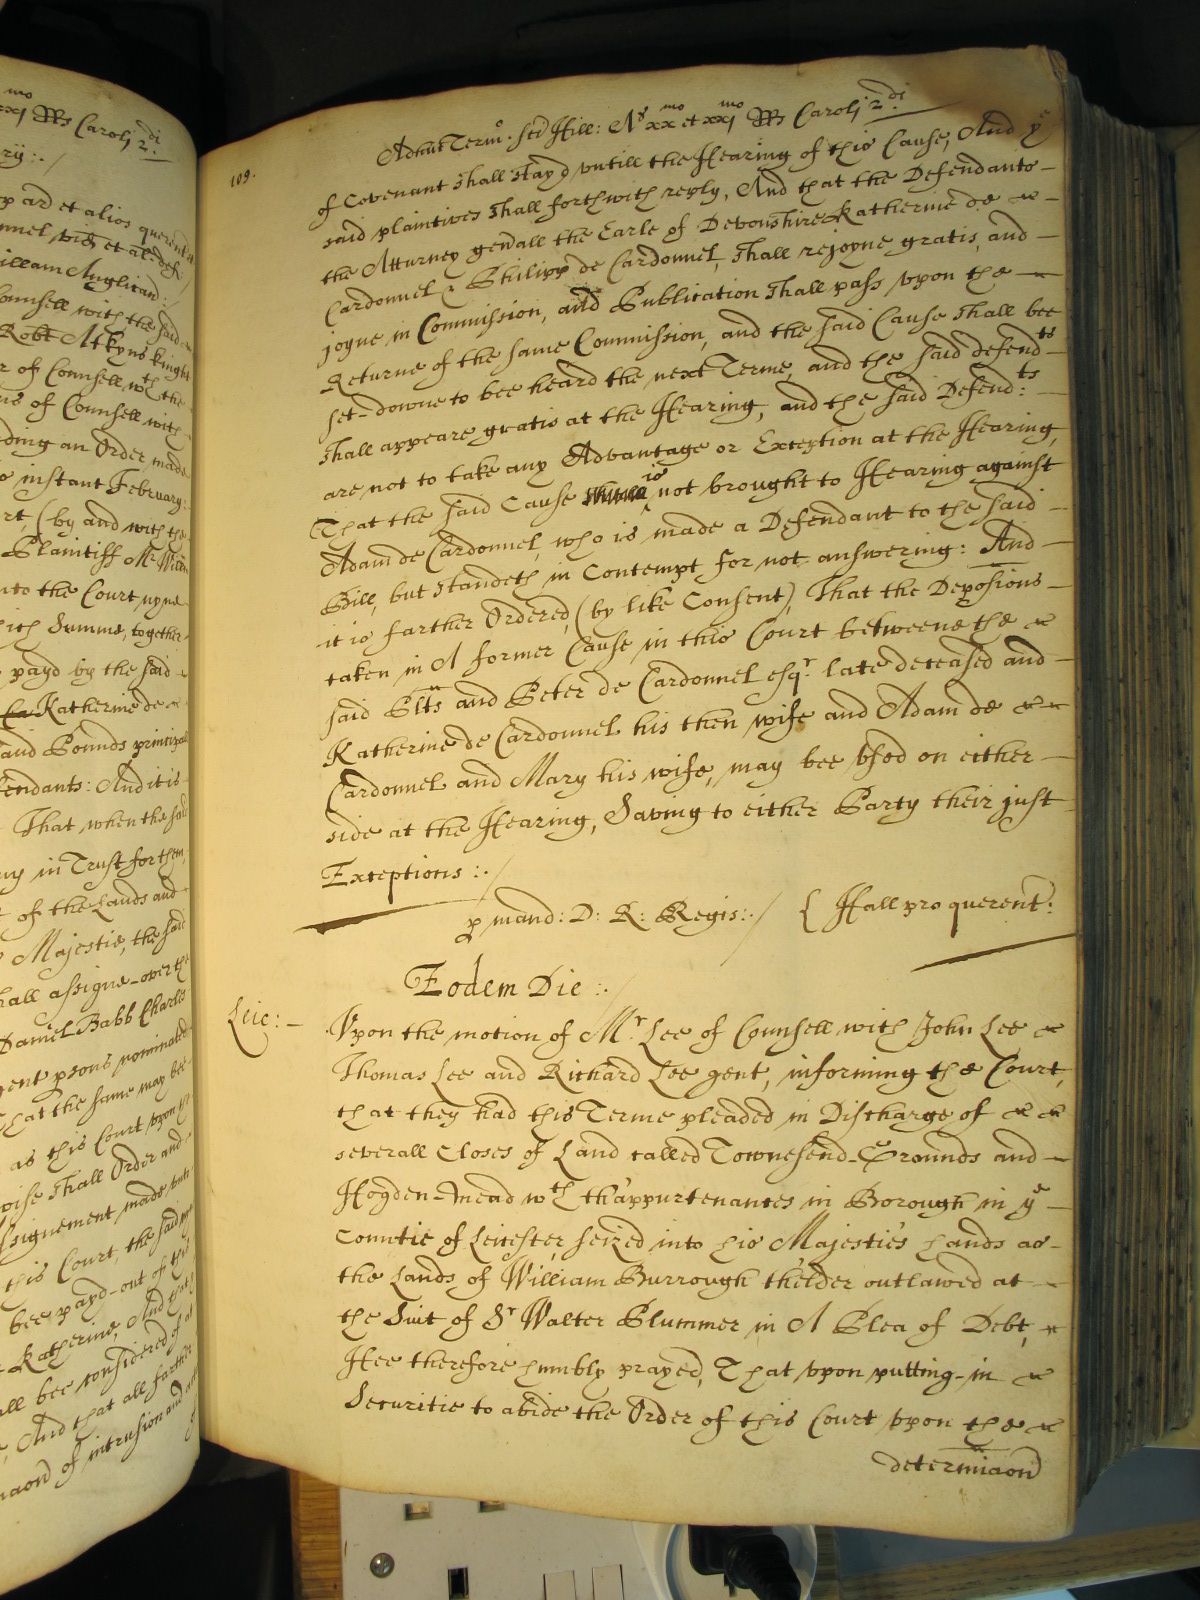 xxj mo Rs Caroli 2. di
p ard et alios querent
nnel vid et al def
illam Anglican: /
Counsell with the said
Robt Atkyns knight
r of Counsell wth the
us of Counsell with
ding an Order made
o instant February:
rt, (by and with the
Plaintiff Mr Willm
nto the Court upon
ith Summe, together
payd by the said
Katherine de
and Pounds principall
endants: And it is
That when the said
ny in Trust for them
of the Lands and
Majestie, the said
hall assigne-over the
Daniel Babb Charles
gent psons nominated
that the same may bee
as this Court vpon
wise shall Order and
ssignement made vnto
this Court, the said
bee payd-out of the
Katherine, And that
all bee considered of at
, And that all farther
maõn of intrusion and
109.
Adhuc Termo. sci Hill: As xx mo et xxj mo Rs Caroli 2. di
of Covenant shall stayd vntill the Hearing of this Cause, And ye
said plaintives shall forthwith reply, And that the Defendants
the Atturney genall the Earle of Devonshire Katherine de
Cardonnel & Philipp de Cardonnel, shall rejoyne gratis, and
joyne in Commission, and Publication shall pass vpon the
Returne of the same Commission, and the said Cause shall bee
set-downe to bee heard the next Terme, and the said defend ts
shall appeare gratis at the Hearing, and the said Defend: ts
are not to take any Advantage or Exception at the Hearing,
That the said Cause is not brought to Hearing against
Adam de Cardonnel, who is made a Defendant to the said
Bill, but standeth in Contempt for not answering: And
it is farther Ordered, (by like Consent), That the Deposions
taken in A former Cause in this Court betweene the
said Plts and Peter de Cardonnel esqr. late deceased and
Katherine de Cardonnel his then wife and Adam de
Cardonnel and Mary his wife, may bee vsed on either
side at the Hearing, Saving to either Party their just
Exceptions :. /
p mand: D: R: Regis:. / { Hall pro querent:
Eodem Die :. /
Leic: - Vpon the motion of Mr. Lee of Counsell with John Lee
Thomas Lee and Richard Lee gent, informing the Court,
that they had this Terme pleaded in Discharge of
severall Closes of Land called Townesend-Grounds and
Hogden-Mead wth th'appurtenances in Borough in ye
Countie of Leicester, seized into his Majestie's hands as
the Lands of William Burrough th'elder outlawed at
the Suit of Sr Walter Plummer in A Plea of Debt,
Hee therefore humbly prayed, That vpon putting-in
Securitie to abide the Order of this Court vpon the
determiaon